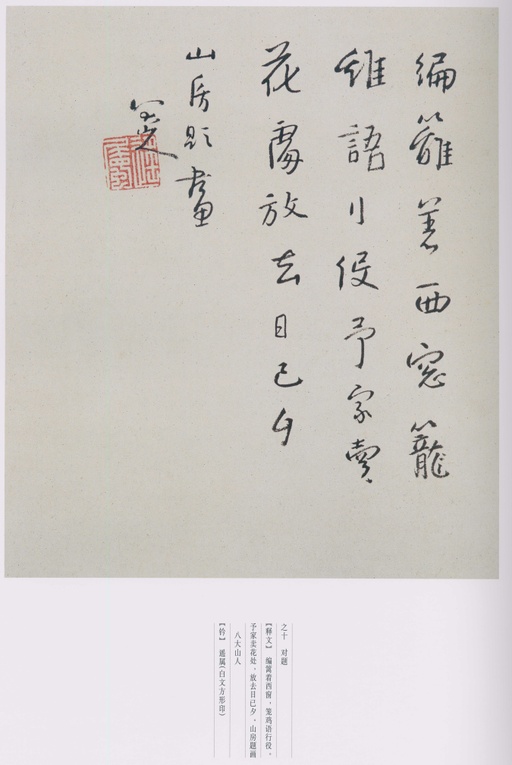 編籬着西窓籠
雞語行役予家賣
花處放去日已夕
山房題畫
八大山人
之十 对题
【释文】 编篱着西窗，笼鸡语行役，
予家卖花处，放去日已夕，山房题画
八大山人
【钤】 遥属(白文方形印)